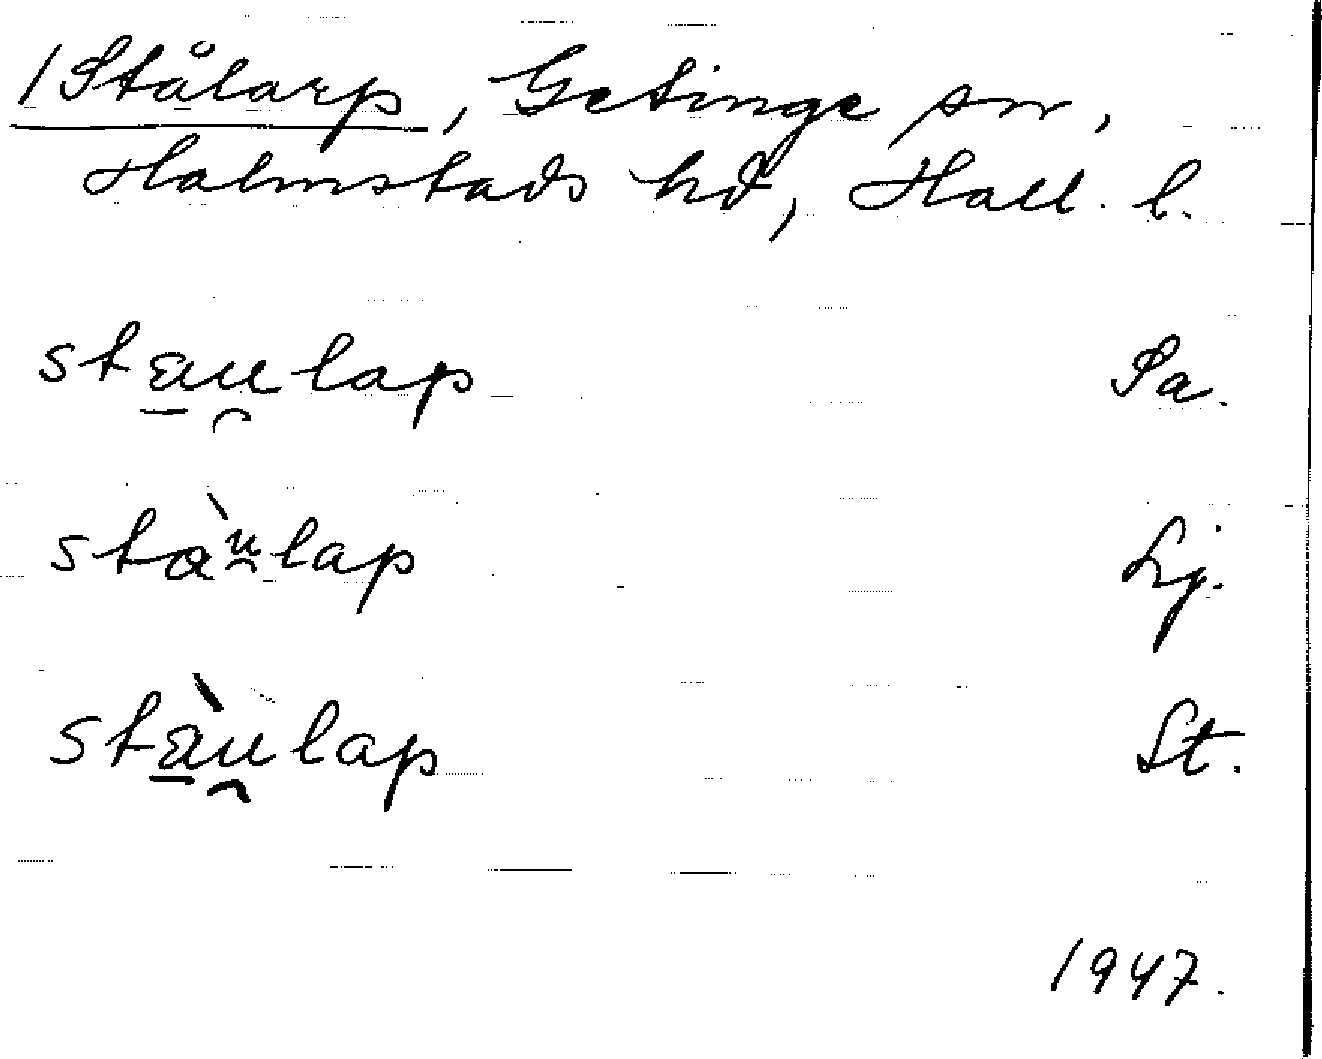 /Stålarp, Getinge sn,
Halmstads hd, Hall. l.
sta̱u̯lap Sa.
stàᵘ̯lap Lj.
stà̱u̯lap St.
1947.